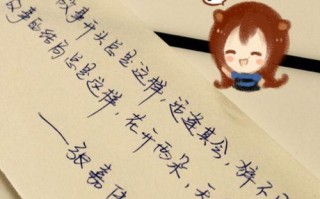 故事开头总是这样，适逢其会，猝不
故事的结局总是这样，花开两朵，天
——张嘉